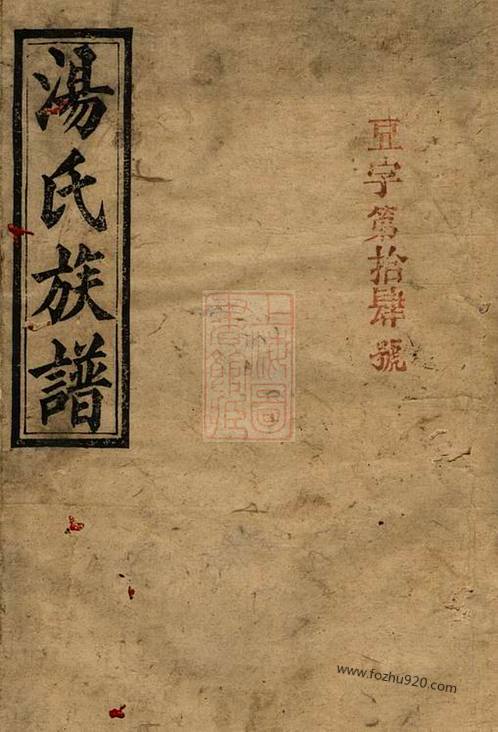 湯氏族譜
字第拾肆號
上海圖
書館藏
www.fozhu920.com